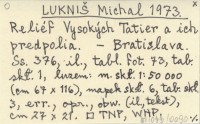 LUKNIŠ Michal 1973.
Reliéf Vysokých Tatier a ich
predpolia. - Bratislava.
Ss. 376, il., tabl. fot. 73, tab.
skł. 1, luzem: m. skł. 1:50 000
(cm 67 x 116), mapek skł. 6, tab. skł.
3, err., opr., obw. (il., tekst),
cm 27 x 21. □ TNP, WHP.